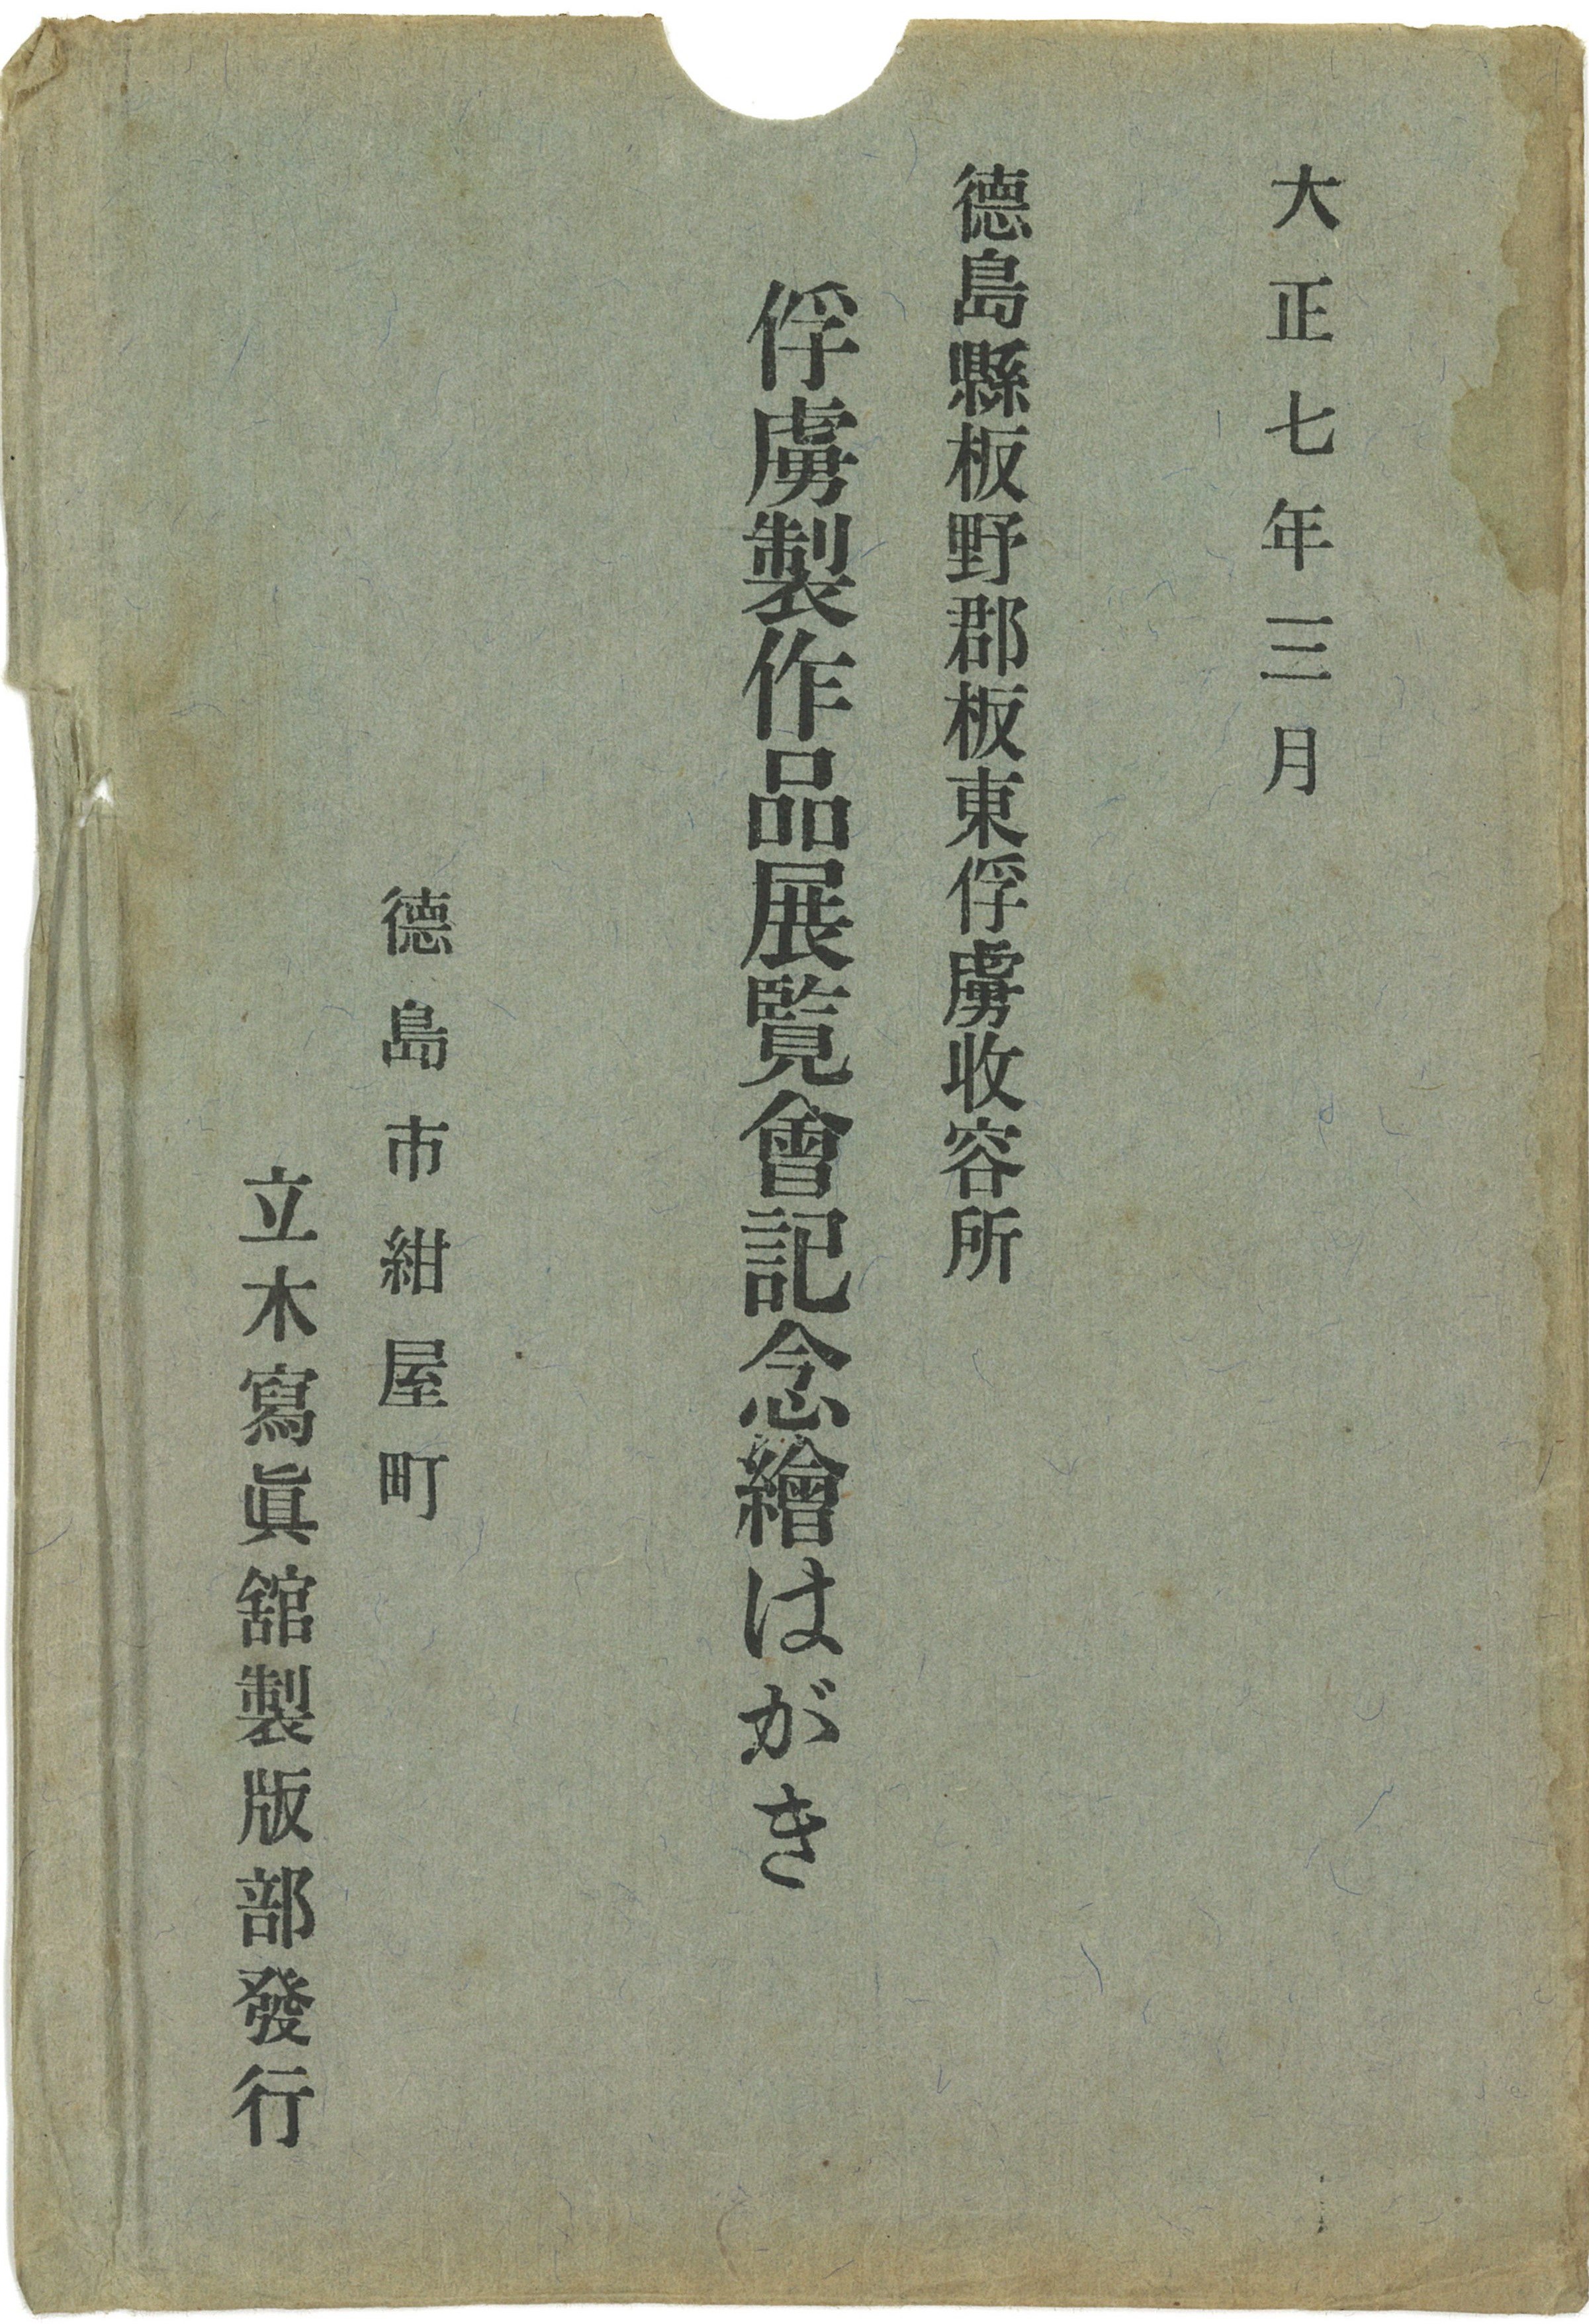 大正七年三月
德島縣板野郡板東俘虜收容所
俘虜製作品展覧會記念繪はがき
德島市紺屋町
立木寫眞舘製版部發行